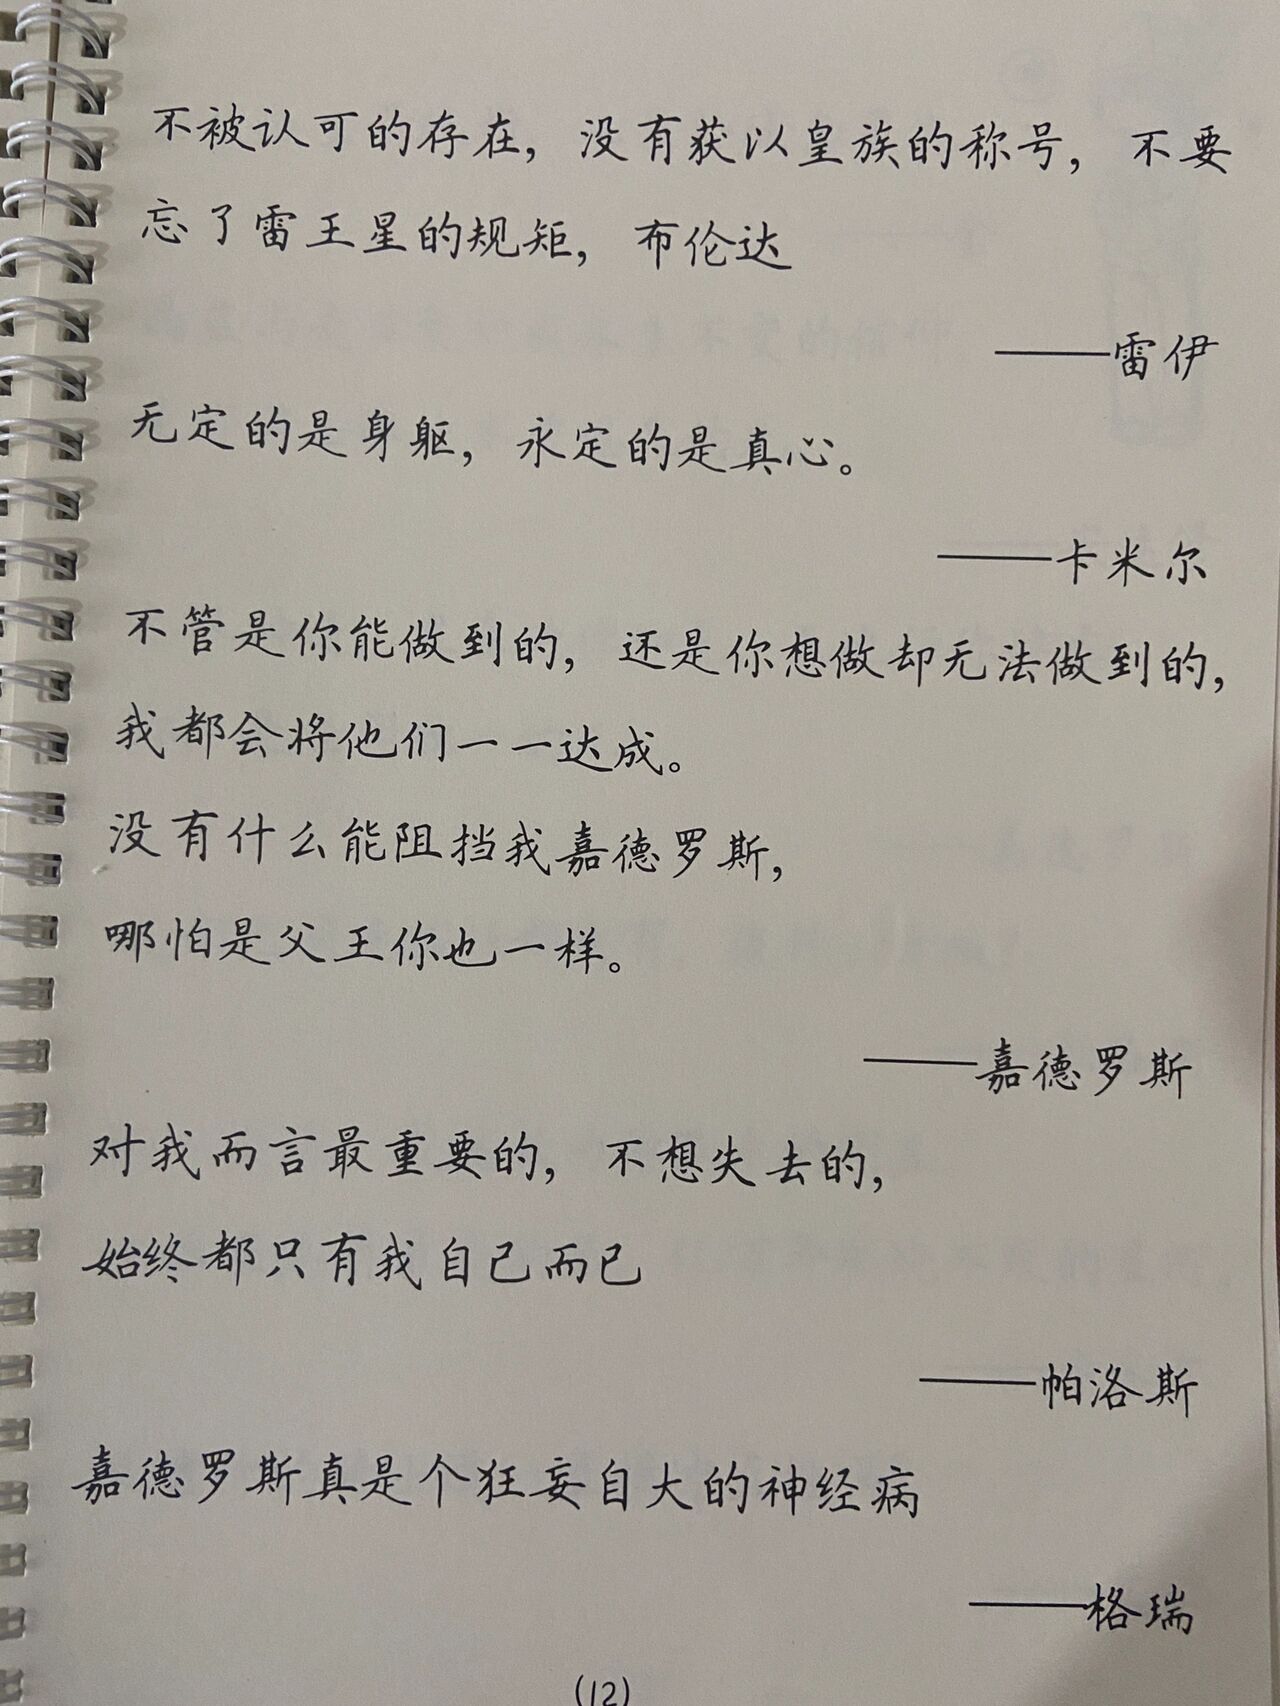 不被认可的存在，没有获以皇族的称号，不要
忘了雷王星的规矩，布伦达
——雷伊
无定的是身躯，永定的是真心。
——卡米尔
不管是你能做到的，还是你想做却无法做到的，
我都会将他们一一达成。
没有什么能阻挡我嘉德罗斯，
哪怕是父王你也一样。
——嘉德罗斯
对我而言最重要的，不想失去的，
始终都只有我自己而已
——帕洛斯
嘉德罗斯真是个狂妄自大的神经病
——格瑞
(12)